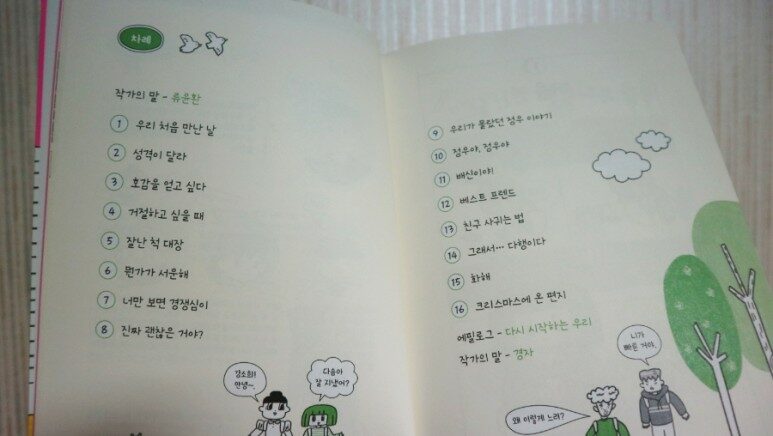 차례
작가의 말 - 류윤환
1 우리 처음 만난 날
2 성격이 달라
3 호감을 얻고 싶다
4 거절하고 싶을 때
5 잘난 척 대장
6 뭔가가 서운해
7 너만 보면 경쟁심이
8 진짜 괜찮은 거야?
강소희!
안녕~.
다음아
잘 지냈어?
9 우리가 몰랐던 정우 이야기
10 정우야, 정우야
11 배신이야!
12 베스트 프렌드
13 친구 사귀는 법
14 그래서… 다행이다
15 화해
16 크리스마스에 온 편지
에필로그 - 다시 시작하는 우리
작가의 말 - 경자
니가
빠른 거야.
왜 이렇게 느려?